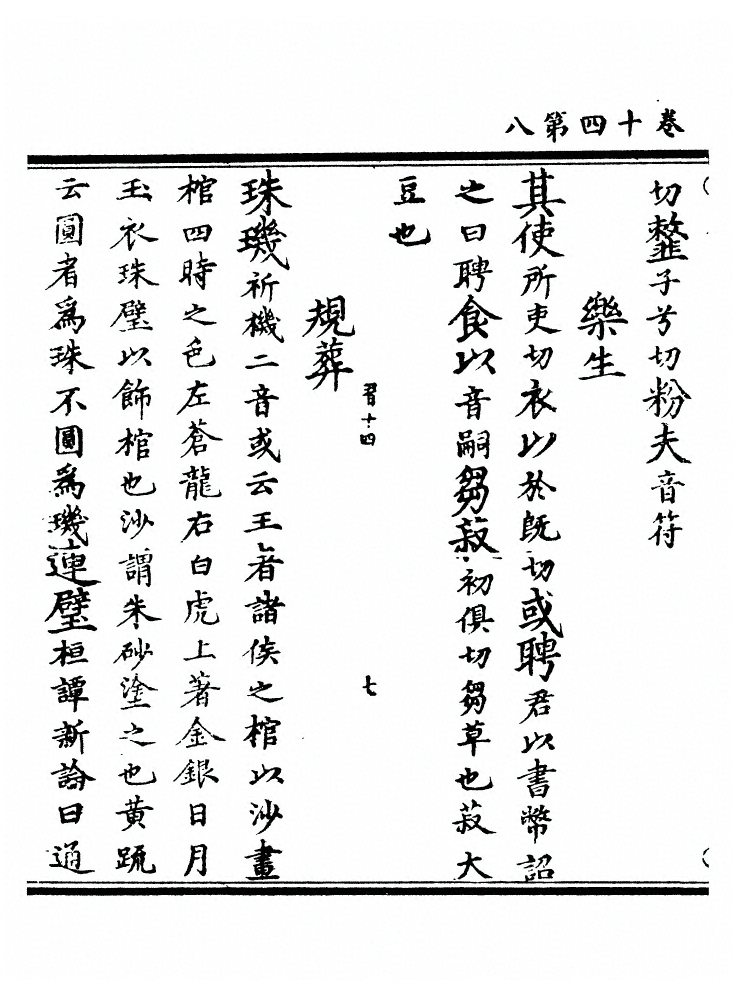 卷十四第八
切韲子兮切粉夫音符
樂生
其使所吏切衣以於既切或聘君以書幣詔
之曰聘食以音嗣芻菽初俱切芻草也菽大
豆也
君十四
七
規葬
珠璣祈機二音或云王者諸侯之棺以沙畫
棺四時之色左蒼龍右白虎上著金銀日月
玉衣珠璧以飾棺也沙謂朱砂塗之也黃䟽
云圓者爲珠不圓爲璣連璧桓譚新論曰通